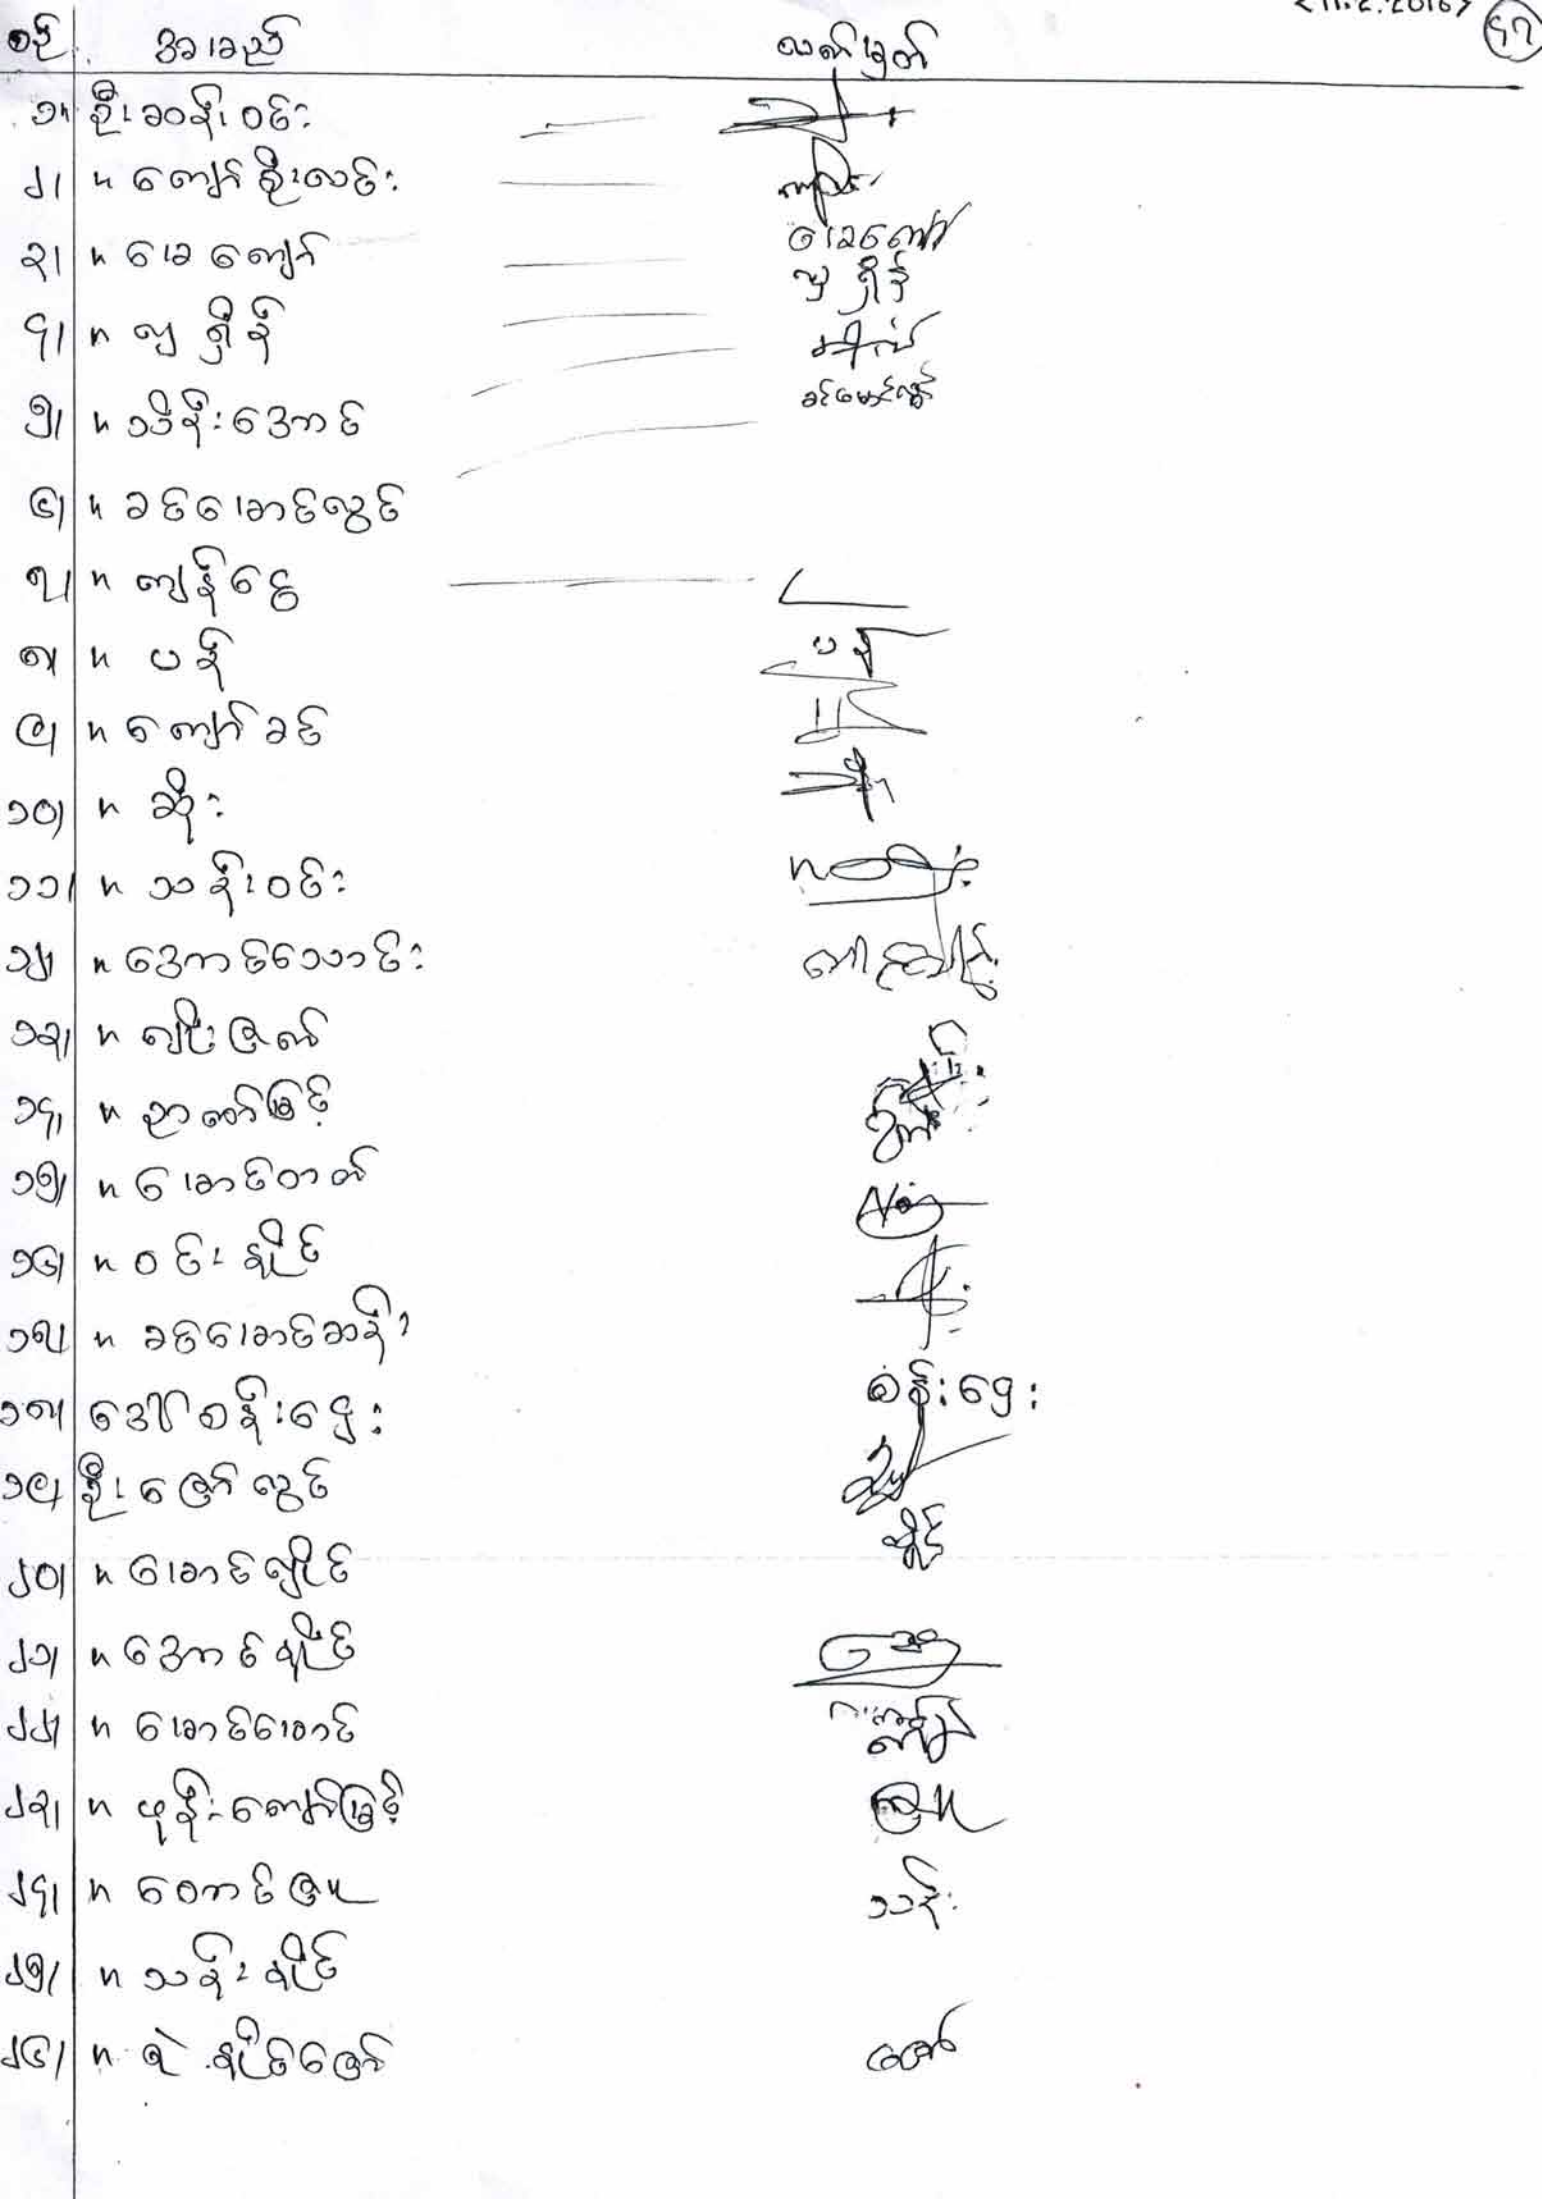 <11.2.2016> ၄၇
စဉ် အမည် လက်မှတ်
၁။ ဦးဆန်းဝင်း
၂။ " ကျော်စိုးလင်း
၃။ " မေကျော် မေကျော်
၄။ " လှရှိန် လှရှိန်
၅။ " သိန်းအောင်
၆။ " ခင်မောင်လွင် ခင်မောင်လွင်
၇။ " ကျန်ငွေ
၈။ " ပန် ပန်
၉။ " ကျော်ခင်
၁၀။ " ဆိုး
၁၁။ " သန်းဝင်း
၁၂။ " အောင်သောင်း
၁၃။ " မျိုးမြတ်
၁၄။ " ဉာဏ်မြင့်
၁၅။ " မောင်တတ်
၁၆။ " ဝင်းနိုင်
၁၇။ " ခင်မောင်ဆန်း
၁၈။ ဒေါ်စန်းဌေး စန်းဌေး
၁၉။ ဦးဇော်လွင်
၂၀။ " မောင်လှိုင် လှိုင်
၂၁။ " အောင်နိုင်
၂၂။ " မောင်မောင်
၂၃။ " ဖုန်းကျော်မြင့်
၂၄။ " စောင်ဖြူ ဖြူ
၂၅။ " သန်းနိုင် သန်း
၂၆။ " ရဲနိုင်ဇော် ဇော်